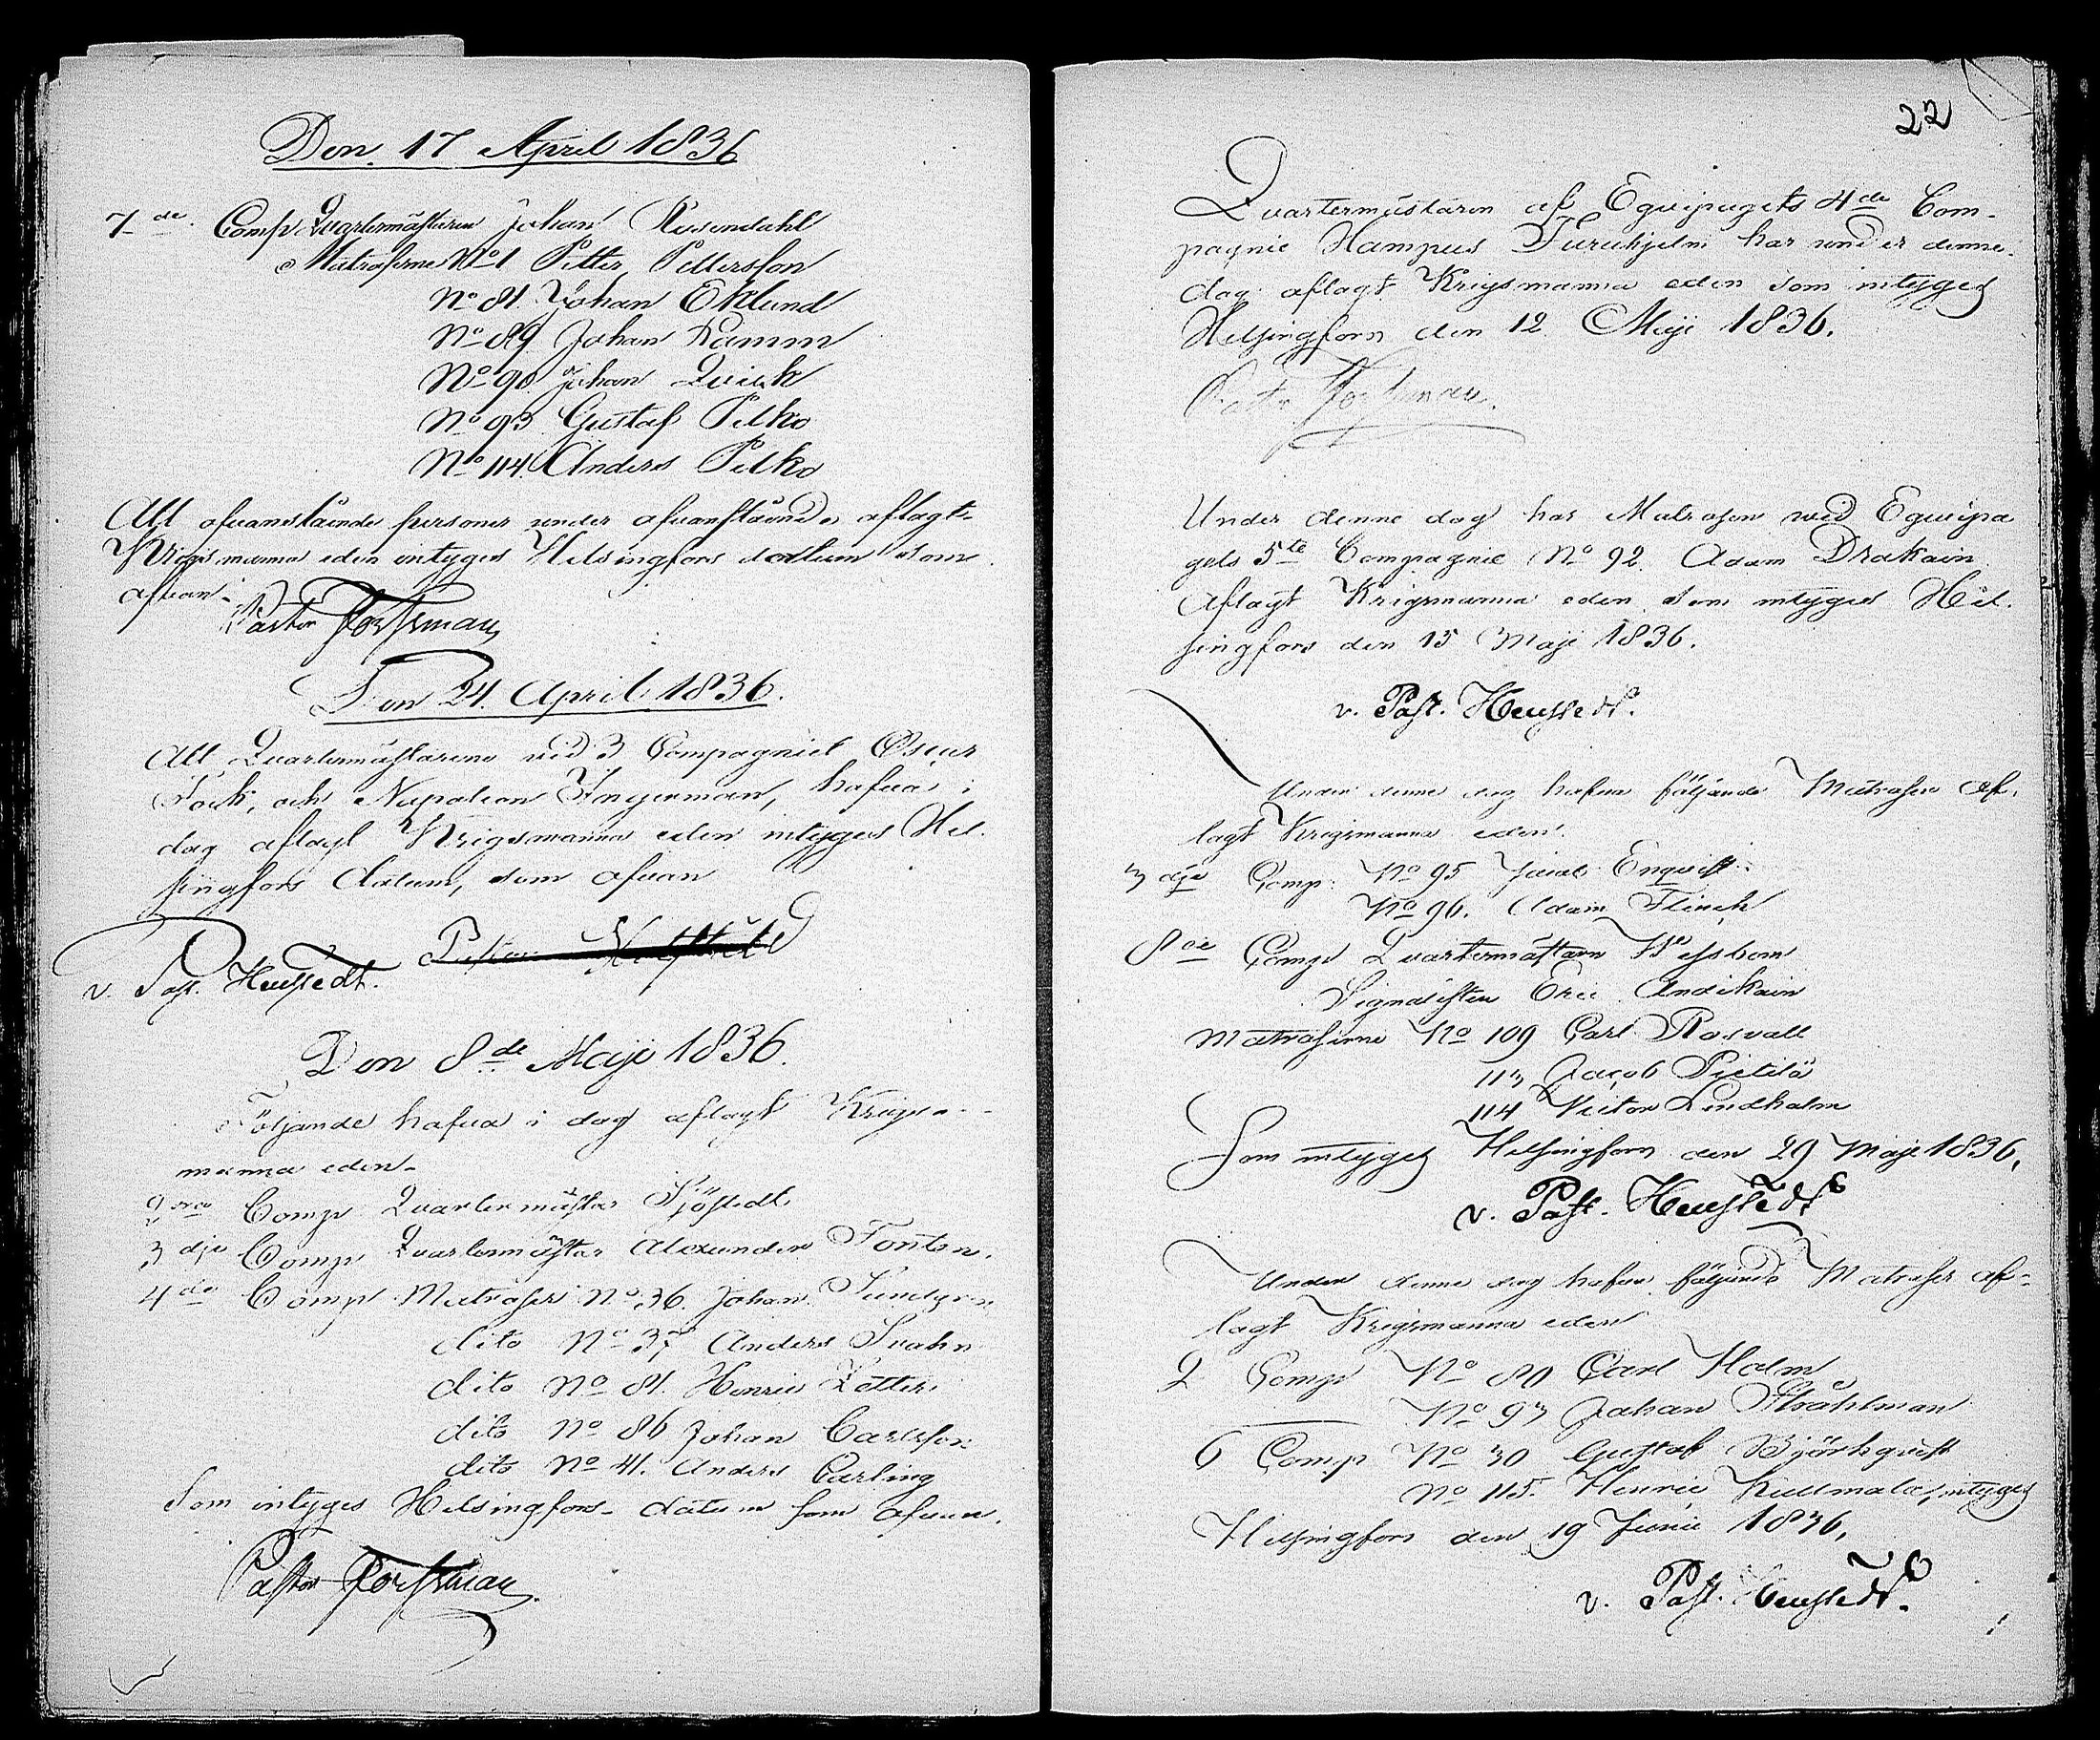 Den 17 April 1836
7de Comp Quartermästaren Johan Rosendahl
Matroserne No 1 Petter Pettersson
No 81 Johan Eklund
No 89 Johan Ramm
No 90 Johan Quick
No 93 Gustaf Pelko
No 114 Anders Pelko
Att ofvanstående personer under ofvanstående aflagt
Krigsmanna eden intygas Helsingfors datum som
ofvan.
Pastor Forssman
Den 24. April 1836.
Att Quartermästarene vid 3 Compagniet Oscar
Fock, och Napoleon Ingerman, hafva i
dag aflagt Krigsmanna eden intygas Hel-
singfors datum, som ofvan
v. Past. Heusstedt.
Den 8de Maji 1836.
Följande hafva i dag aflagt Krigs-
manna eden.
2dra Comp Quartermästar Sjöstedt
3dje Comp Quartermästar Alexander Fontin.
4de Comp Matroser No 36. Johan
dito No 37 Anders Svahn
dito No 81. Henric
dito No 86 Johan Carlsson
dito No 41. Anders Carling
Som intygas Helsingfors datum som ofvan.
Pastor Forssman.
22
Quartermästaren af Equipagets 4de Com-
pagnie Hampus Furuhjelm har under denne
dag aflagt Krigsmanna eden som intyges
Helsingfors den 12 Maji 1836.
Pastor Forssman.
Under denne dag har Matrosen wid Equipa
gets 5te Compagnie No 92. Adam Drakain
Aflagt Krigsmanna eden som intyges Hel-
singfors den 15 Maji 1836.
v. Past. Heusstedt.
Under denne dag hafva följande Matroser af-
lagt Krigsmanna eden.
3dje Comp. No 95 Jacob Enqvist
No 96. Adam Flinck
8de Comp Quartermästarn Wessbom
Signalisten Eric Andikain
Matroserne No 109 Carl Rosvall
113 Jacob Pietilä
114 Victor Lindholm
Som intyges Helsingfors den 29 Maji 1836.
v. Past. Heusstedt
Under denne dag hafva följande Matroser af-
lagt Krigsmanna eden
2 Comp No 80 Carl Holm
No 93 Johan Stråhlman
6 Comp No 30 Gustaf Björkqvist
No 115. Henric Kullmala, intyges
Helsingfors den 19 Junii 1836.
v. Past. Heusstedt.